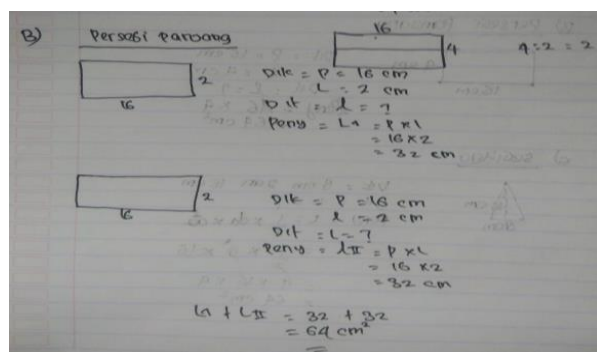 B) Persegi Panjang
16
4
4 : 2 = 2
2
16
Dik = P = 16 cm
L = 2 cm
Dit = L = ?
Peny = L1 = P x L
= 16 x 2
= 32 cm
2
16
Dik = P = 16 cm
l = 2 cm
Dit = L = ?
Peny = LII = P x L
= 16 x 2
= 32 cm
L1 + LII = 32 + 32
= 64 cm²